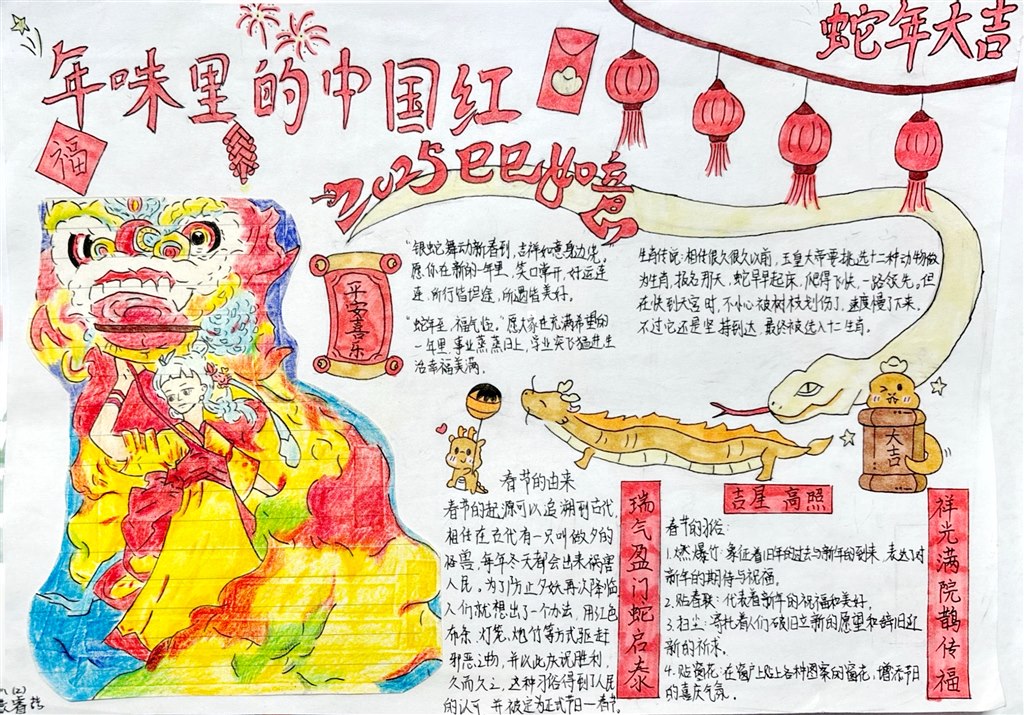 蛇年大吉
年味里的中国红
福
2025巳巳如意
平安喜乐
"银蛇舞动新春到,吉祥如意身边绕。
愿你在新的一年里、笑口常开,好运连
连、所行皆坦途,所遇皆美好。
"蛇年至,福气临。"愿大家在充满希望的
一年里,事业蒸蒸日上,学业突飞猛进,生
活幸福美满。
生肖传说:相传很久很久以前,玉皇大帝要挑选十二种动物做
为生肖,报名那天,蛇早早起床,爬得飞快,一路领先。但
在快到天宫时,不小心被树枝划伤了,速度慢了下来,
不过它还是坚持到达,最终被选入十二生肖。
大吉
春节的由来
春节的起源可以追溯到古代,
相传在古代有一只叫做夕的
怪兽,每年冬天都会出来祸害
人民。为了防止夕妖再次降临
人们就想出了一个办法,用红色
布条、灯笼、炮竹等方式驱赶
邪恶之物,并以此庆祝胜利,
久而久之,这种习俗得到了人民
的认可,并被定为正式节日—春节。
瑞气盈门蛇启泰
吉星高照
春节的习俗:
1.燃爆竹:象征着旧年的过去与新年的到来,表达了对
新年的期待与祝福。
2.贴春联:代表着新年的祝福和美好。
3.扫尘:寄托着人们破旧立新的愿望和辞旧迎
新的祈求。
4.贴窗花:在窗户上贴上各种图案的窗花,增添节日
的喜庆气氛。
祥光满院鹊传福
(2)